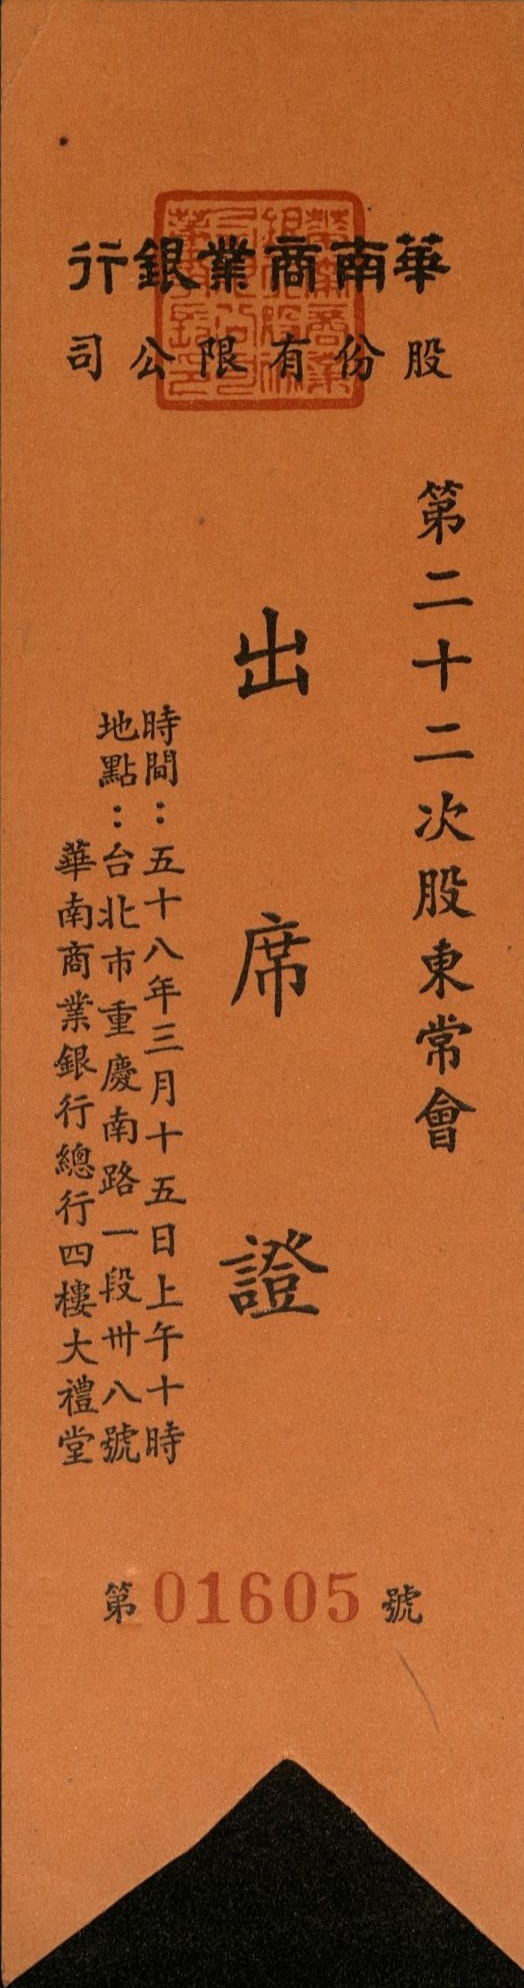 華南商業銀行
股份有限公司
第二十二次股東常會
出席證
時間：五十八年三月十五日上午十時
地點：台北市重慶南路一段卅八號
華南商業銀行總行四樓大禮堂
第01605號